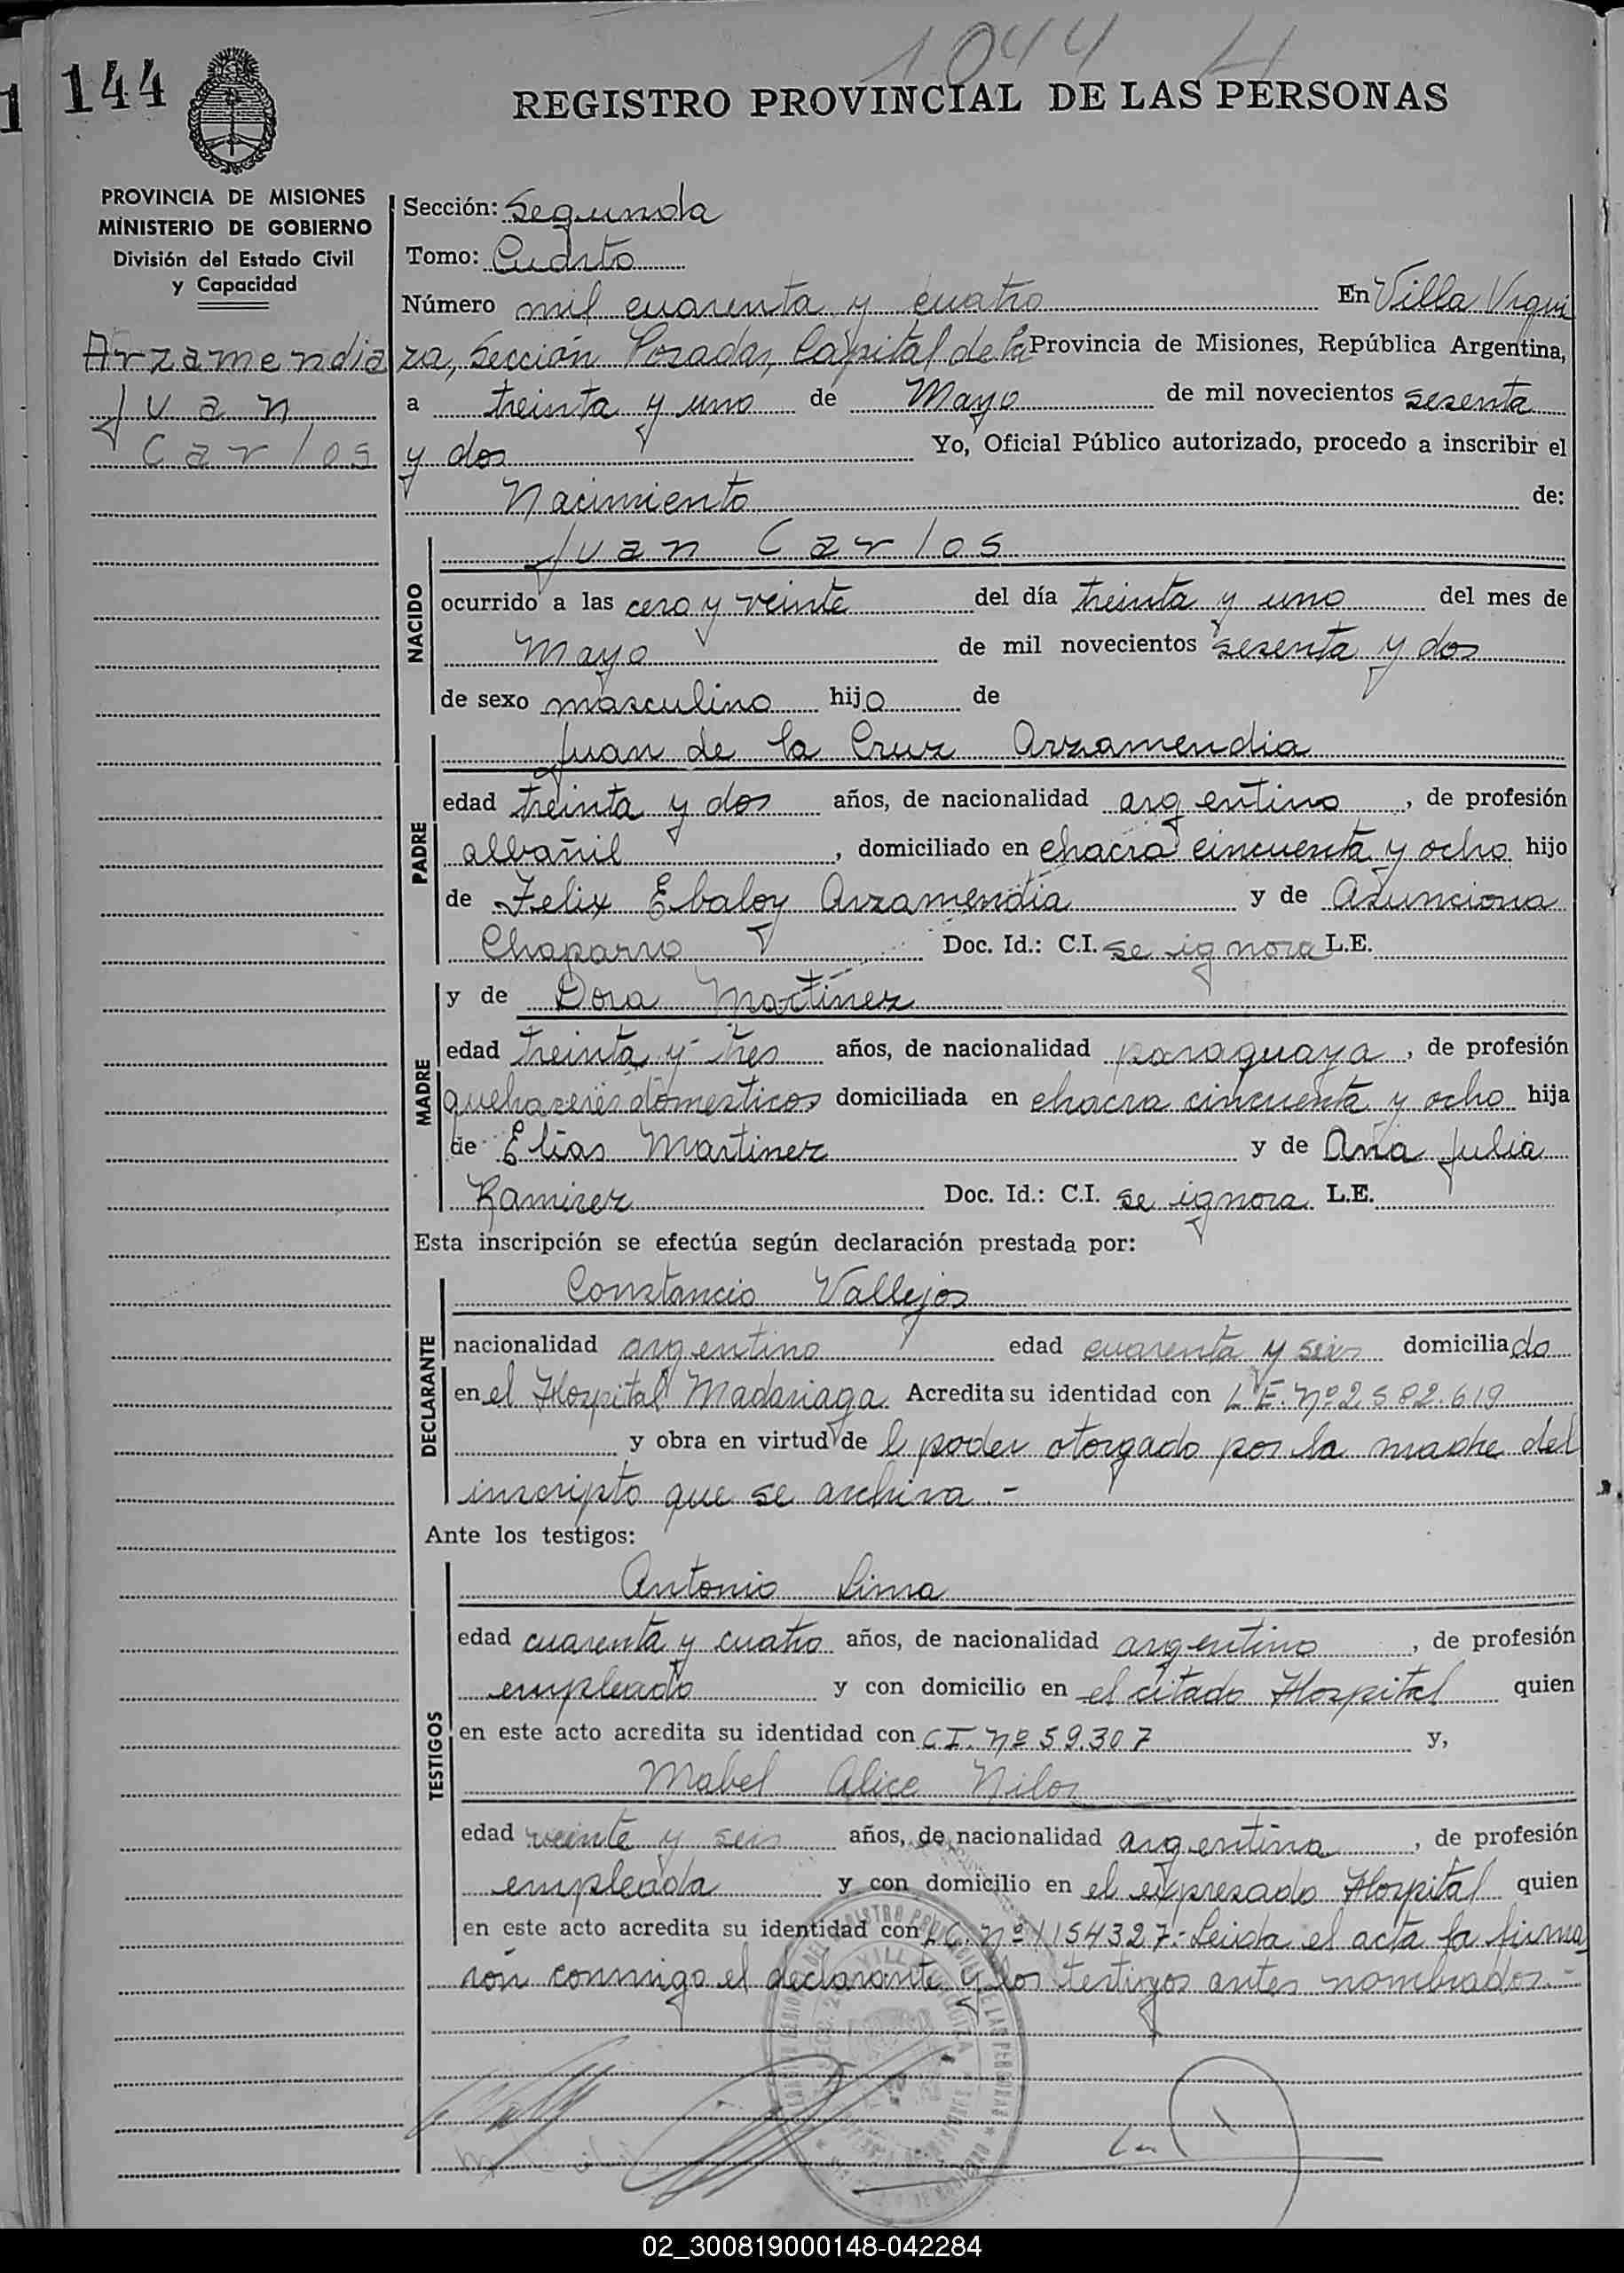 1044
144
1
REGISTRO PROVINCIAL DE LAS PERSONAS
PROVINCIA DE MISIONES
MINISTERIO DE GOBIERNO
División del Estado Civil
y Capacidad
Arzamendia
Juan
Carlos
Sección: Segunda
Tomo: Cuarto
Número mil cuarenta y cuatro En Villa Urqui
za, Sección Posadas, Capital de la Provincia de Misiones, República Argentina,
a treinta y uno de Mayo de mil novecientos sesenta
y dos Yo, Oficial Público autorizado, procedo a inscribir el
Nacimiento de:
NACIDO
Juan Carlos
ocurrido a las cero y veinte del día treinta y uno del mes de
Mayo de mil novecientos sesenta y dos
de sexo masculino hijo de
PADRE
Juan de la Cruz Arzamendia
edad treinta y dos años, de nacionalidad argentino, de profesión
albañil, domiciliado en chacra cincuenta y ocho hijo
de Felix Ebaloy Arzamendia y de Asunciona
Chaparro Doc. Id.: C.I. se ignora L.E.
MADRE
y de Dora Martinez
edad treinta y tres años, de nacionalidad paraguaya, de profesión
quehaceres domesticos domiciliada en chacra cincuenta y ocho hija
de Elías Martinez y de Ana Julia
Ramirez Doc. Id.: C.I. se ignora L.E.
Esta inscripción se efectúa según declaración prestada por:
DECLARANTE
Constancio Vallejos
nacionalidad argentino edad cuarenta y seis domiciliado
en el Hospital Madariaga. Acredita su identidad con L.E. Nº 2582.619
y obra en virtud de l poder otorgado por la madre del
inscripto que se archiva.-
Ante los testigos:
TESTIGOS
Antonio Lima
edad cuarenta y cuatro años, de nacionalidad argentino, de profesión
empleado y con domicilio en el citado Hospital quien
en este acto acredita su identidad con C.I. Nº 59.307 y,
Mabel Alice Nilos
edad veinte y seis años, de nacionalidad argentina, de profesión
empleada y con domicilio en el expresado Hospital quien
en este acto acredita su identidad con L.C. Nº 1154327.- Leida el acta la firma
ron conmigo el declarante y los testigos antes nombrados.-
02_300819000148-042284